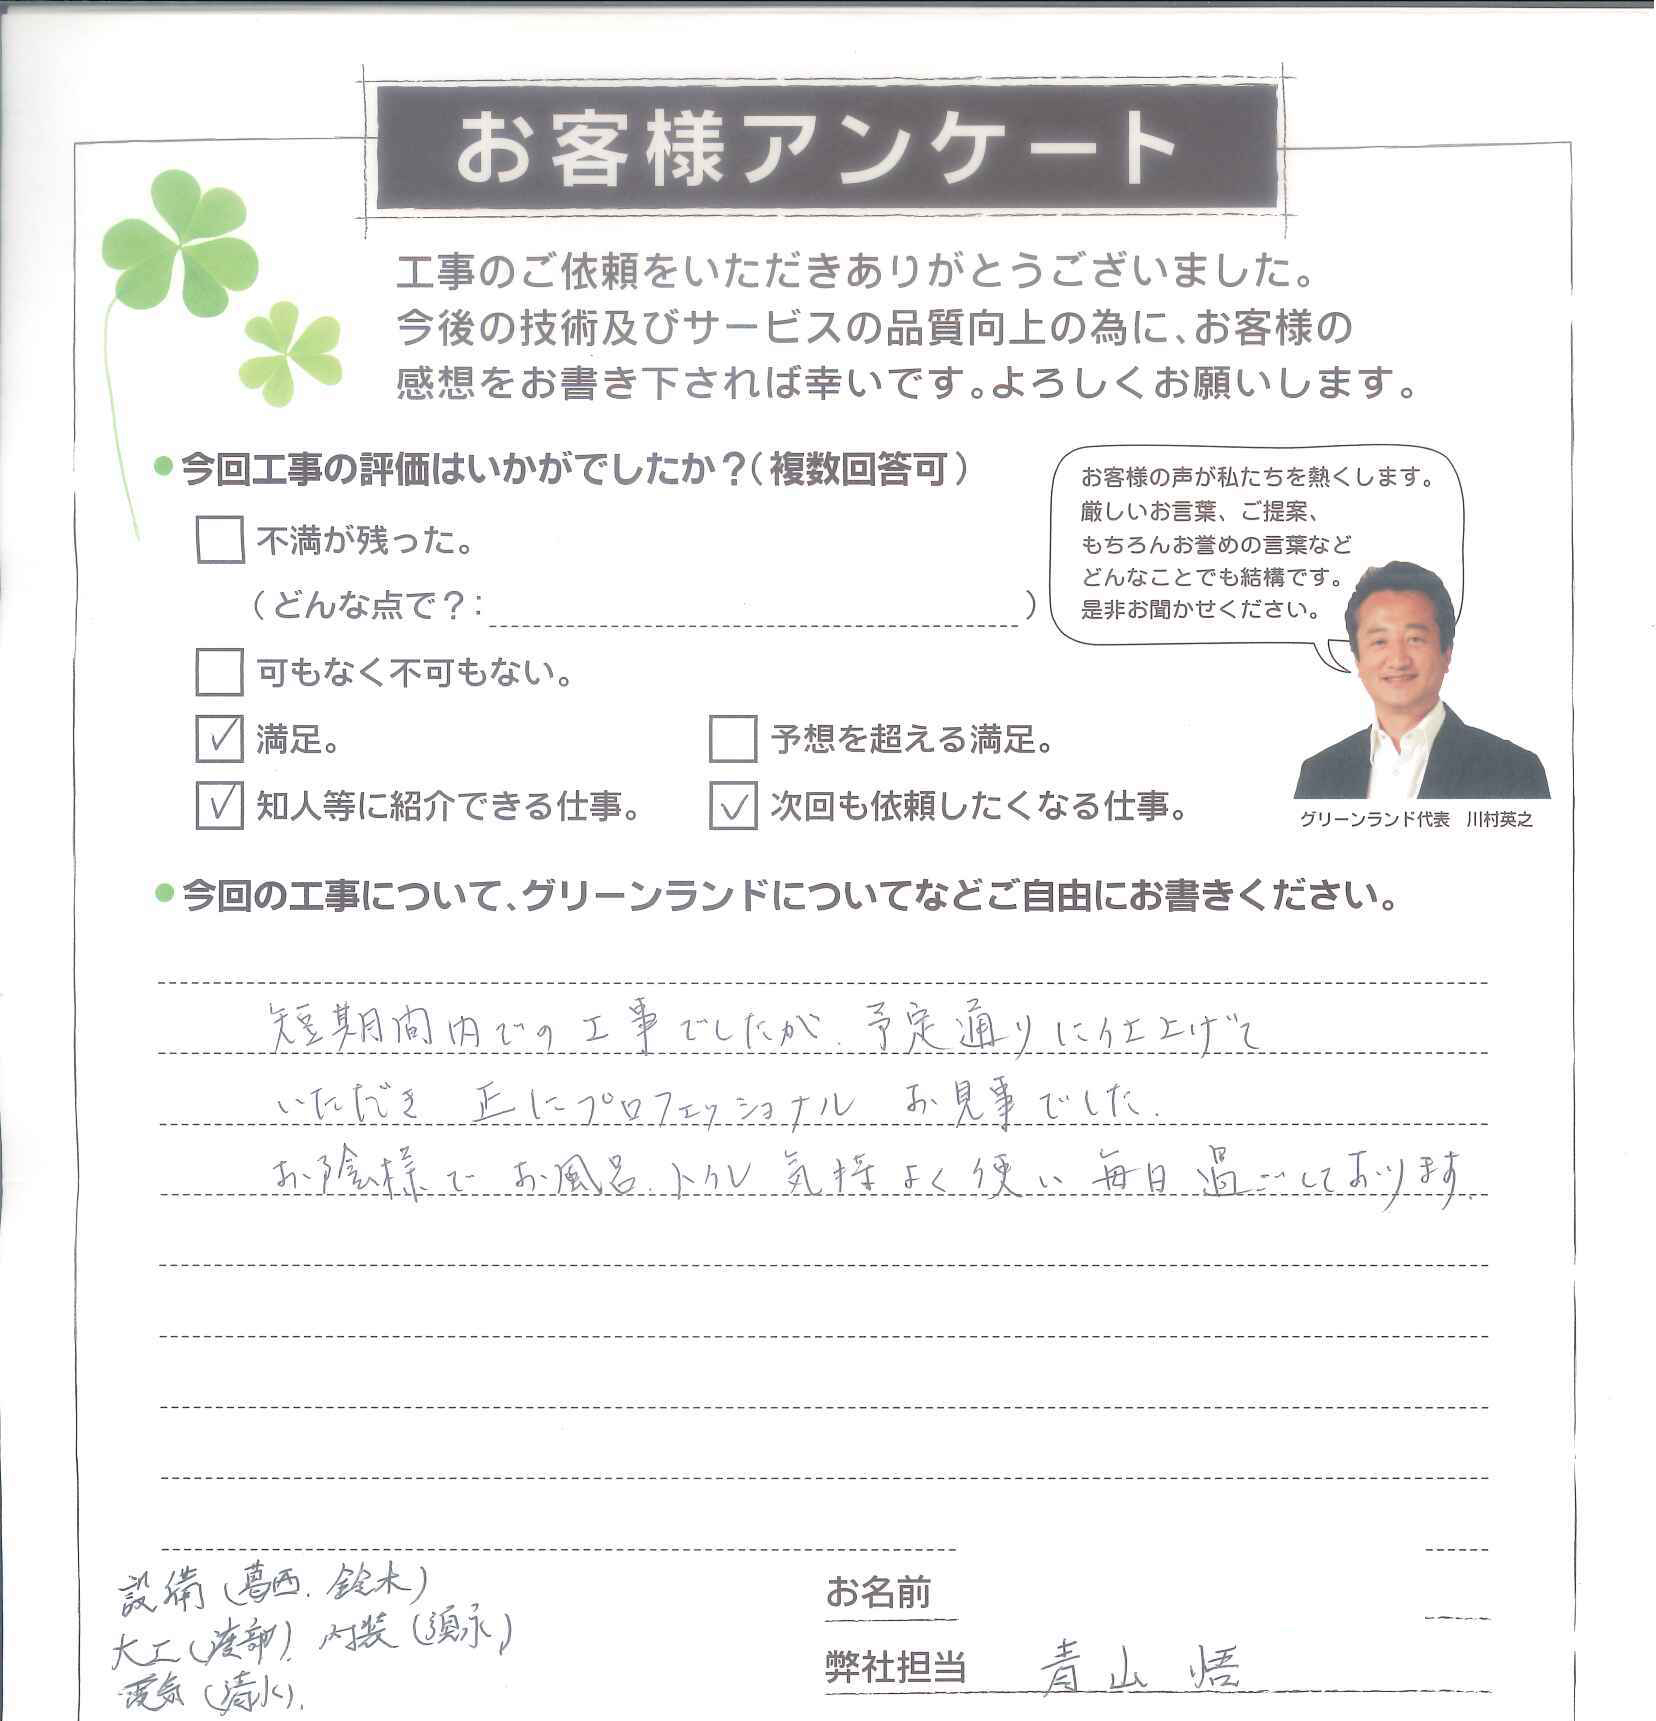 お客様アンケート
工事のご依頼をいただきありがとうございました。
今後の技術及びサービスの品質向上の為に、お客様の
感想をお書き下されば幸いです。よろしくお願いします。
●今回工事の評価はいかがでしたか？（複数回答可）
□ 不満が残った。
（どんな点で？： ）
□ 可もなく不可もない。
☑ 満足。 □ 予想を超える満足。
☑ 知人等に紹介できる仕事。 ☑ 次回も依頼したくなる仕事。
お客様の声が私たちを熱くします。
厳しいお言葉、ご提案、
もちろんお誉めの言葉など
どんなことでも結構です。
是非お聞かせください。
グリーンランド代表 川村英之
●今回の工事について、グリーンランドについてなどご自由にお書きください。
短期間内での工事でしたが、予定通りに仕上げて
いただき 正にプロフェッショナル お見事でした.
お陰様で お風呂、トイレ 気持よく使い 毎日過ごしております.
設備（葛西. 鈴木）
大工（渡部）. 内装（須永）
電気（清水）.
お名前
弊社担当 青山 悟